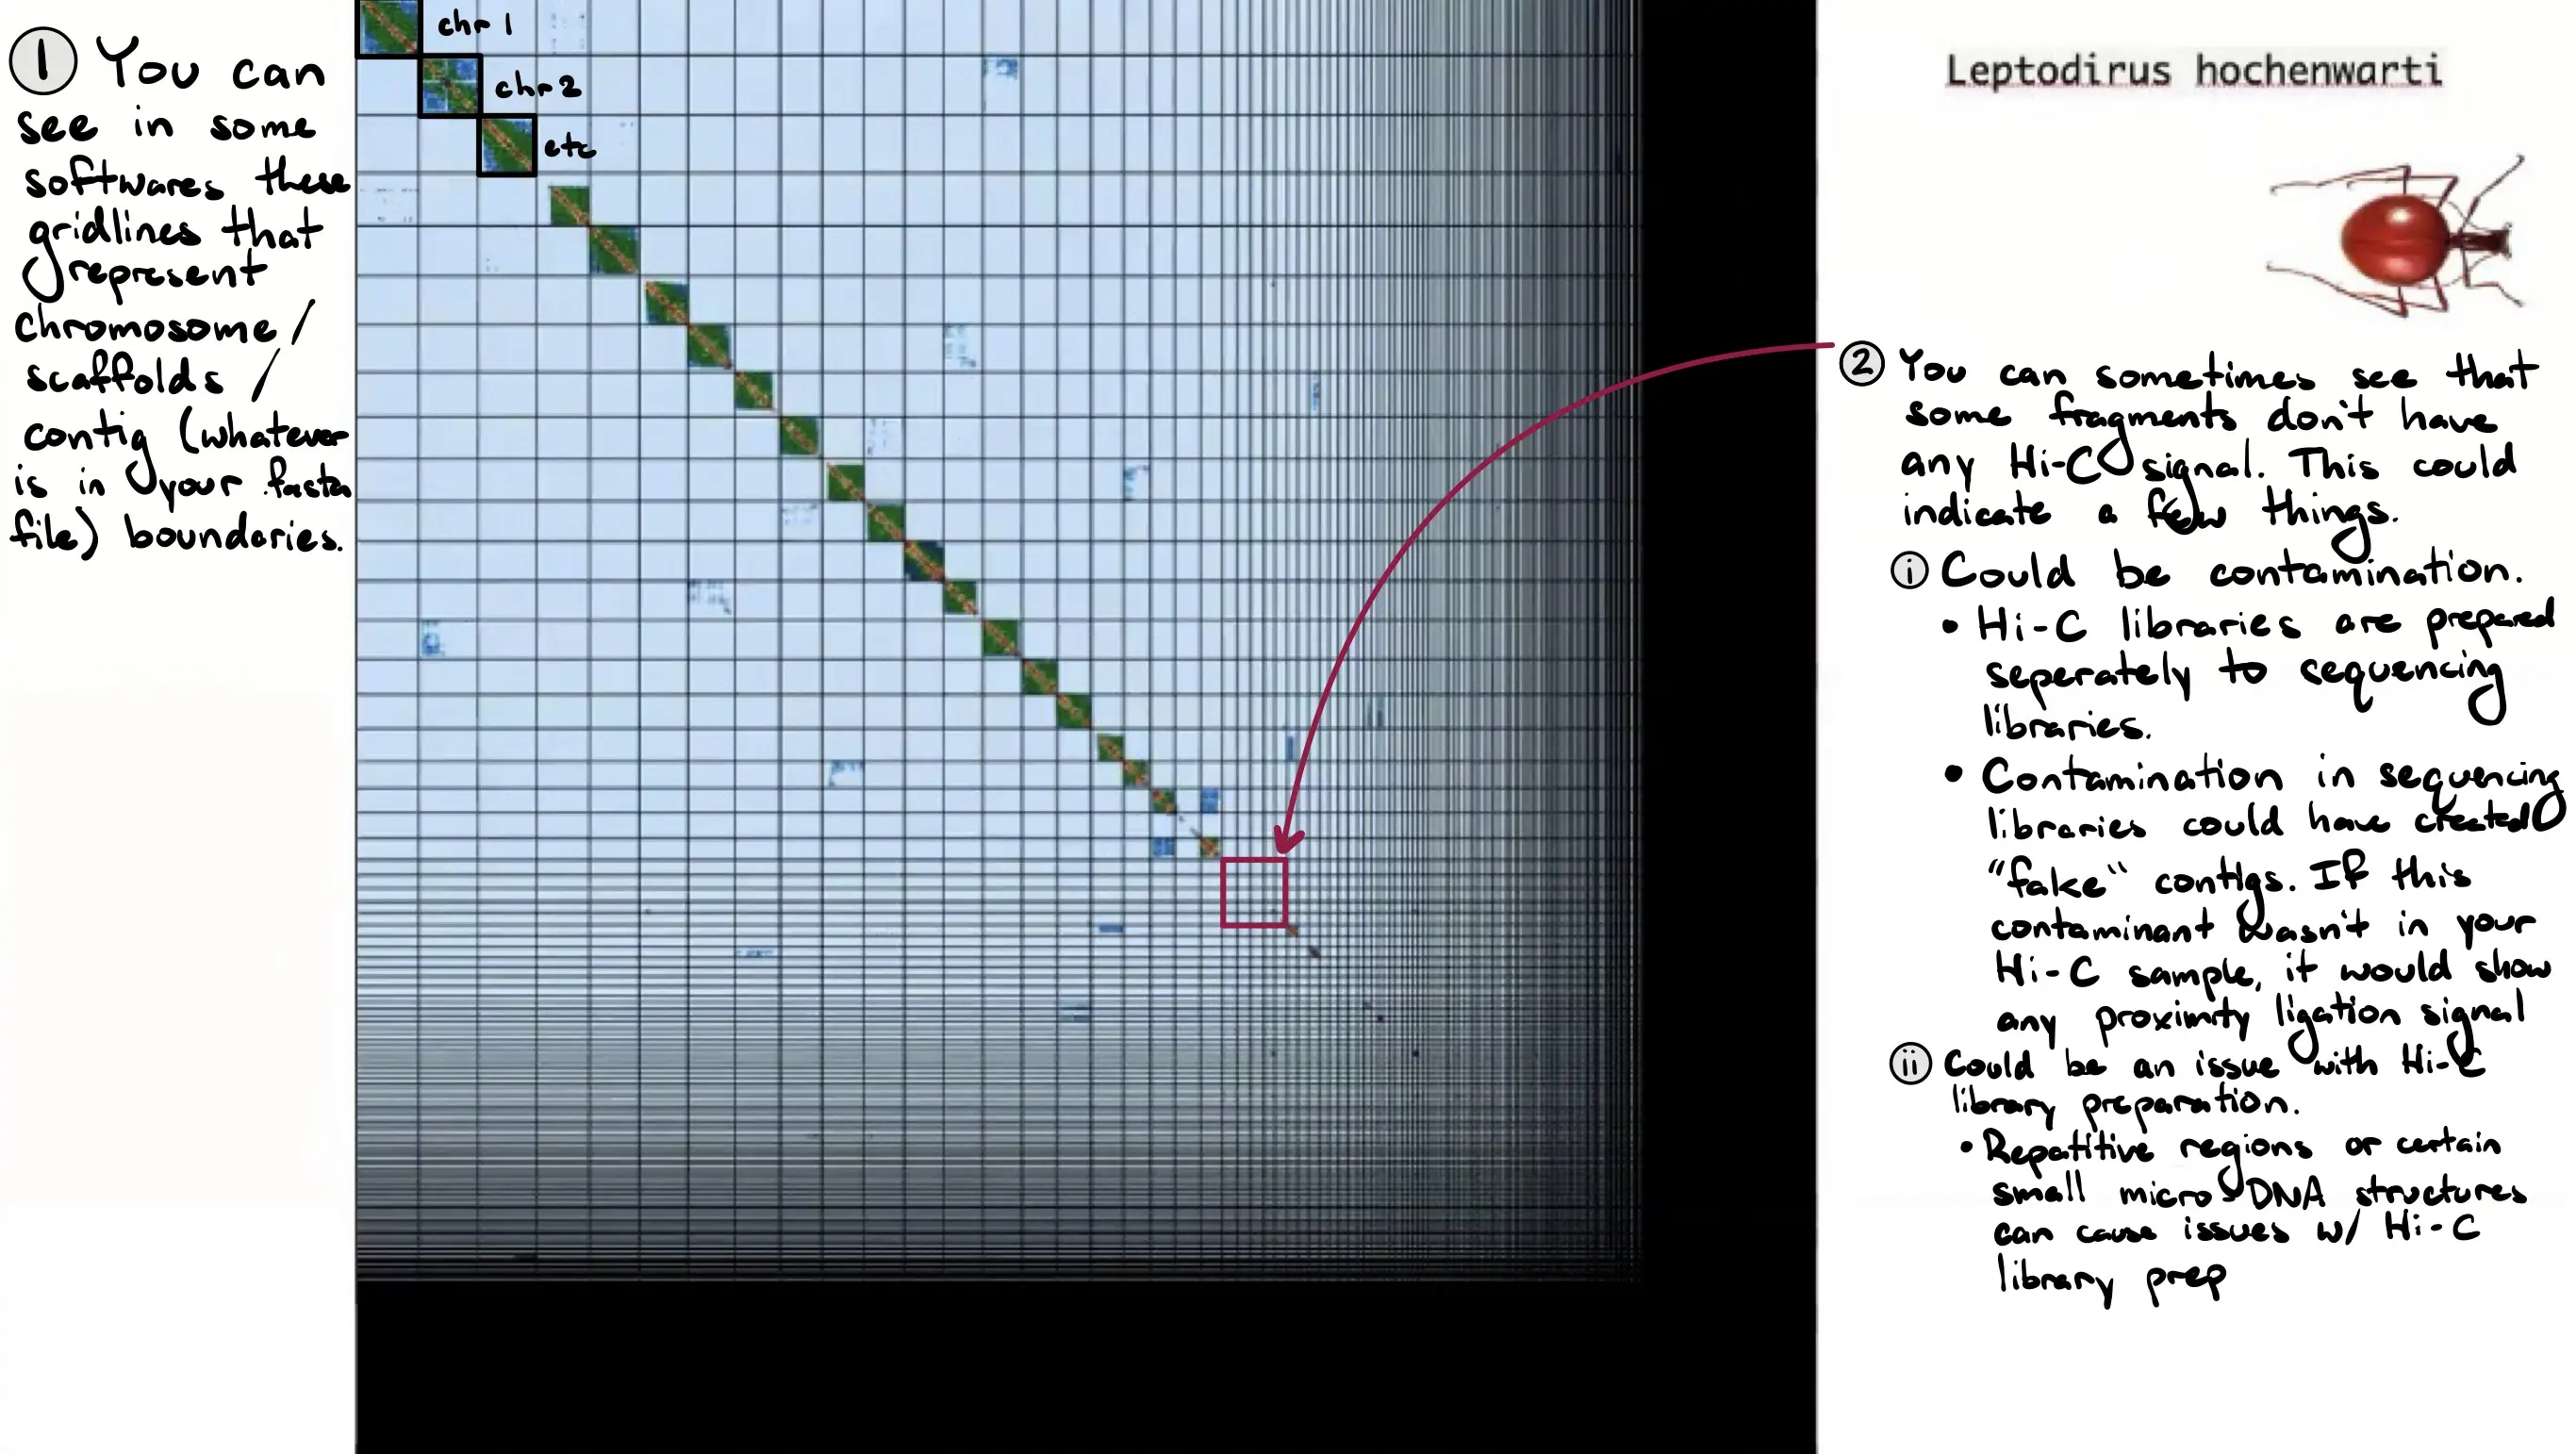 ① You can
see in some
softwares these
gridlines that
represent
chromosome/
scaffolds /
contig (whatever
is in your .fasta
file) boundaries.
chr 1
chr 2
etc
Leptodirus hochenwarti
② You can sometimes see that
some fragments don't have
any Hi-C signal. This could
indicate a few things.
ⓘ Could be contamination.
• Hi-C libraries are prepared
seperately to sequencing
libraries.
• Contamination in sequencing
libraries could have created
"fake" contigs. If this
contaminant wasn't in your
Hi-C sample, it would show
any proximity ligation signal
ⓘⓘ Could be an issue with Hi-C
library preparation.
• Repatitive regions or certain
small micro DNA structures
can cause issues w/ Hi-C
library prep